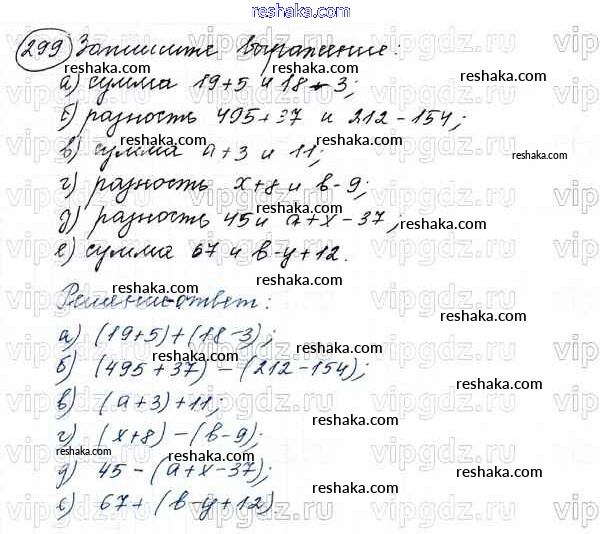 reshaka.com
299 Запишите выражение:
а) сумма 19+5 и 18-3;
б) разность 495+37 и 212-154;
в) сумма a+3 и 11;
г) разность x+8 и b-9;
д) разность 45 и a+x-37;
е) сумма 67 и b-y+12.
Решение-ответ:
а) (19+5)+(18-3);
б) (495+37)-(212-154);
в) (a+3)+11;
г) (x+8)-(b-9);
д) 45-(a+x-37);
е) 67+(b-y+12)
vipgdz.ru
reshaka.com